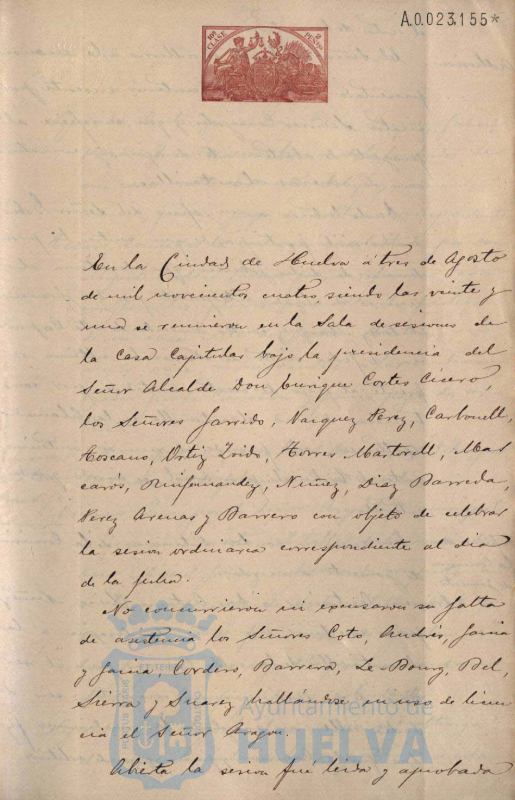 A.0.023.155*
10ª CLASE
2 PESETAS
En la Ciudad de Huelva á tres de Agosto
de mil novecientos cuatro, siendo las veinte y
una se reunieron en la Sala de sesiones de
la Casa Capitular bajo la presidencia del
Señor Alcalde Don Enrique Cortes Cicero,
los Señores Garrido, Vazquez Perez, Carbonell,
Toscano, Ortiz Toido, Torres Martorell, Mas
carós, Ruifernandez, Nuñez, Diaz Barreda,
Perez Arenas y Barrero con objeto de celebrar
la sesion ordinaria correspondiente al dia
de la fecha.
No concurrieron ni excusaron su falta
de asistencia los Señores Coto, Andrés, Garcia
y Garcia, Cordero, Barrera, Le-Bourg, Bel,
Sierra y Suarez hallándose en uso de licen
cia el Señor Aragon.
Abierta la sesion fué leida y aprobada
Ayuntamiento de
HUELVA